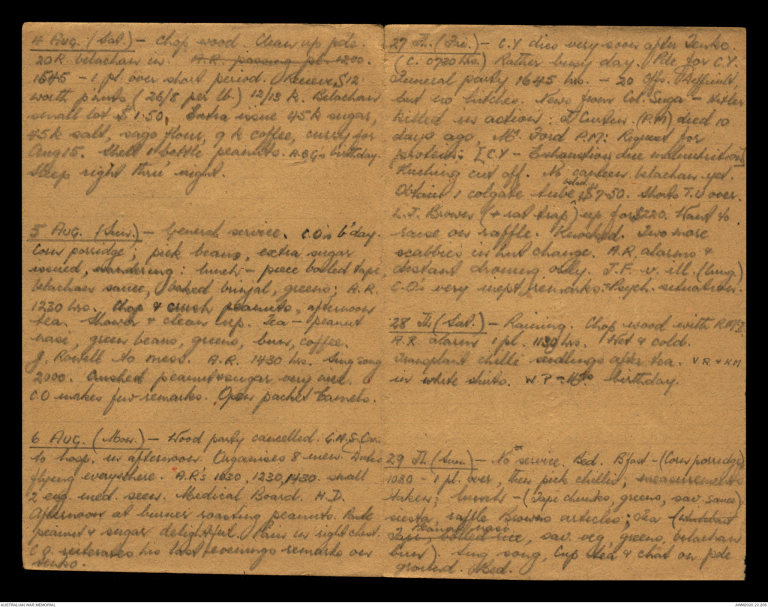 4 Aug. (Sat.) – Chop wood. Clean up pde.
20R. belachan in. A.R. passing pl. 1200.
1545 – 1 pl. over short period. Receive $12
worth points (26/8 per lb.) 12/13 k. Belachan
small lot $1.50, Extra issue 45k sugar,
45k salt, sago flour, 9 k coffee, curry for
Aug 15. Shell 1 bottle peanuts. birthday.
Sleep right thru night.
5 Aug. (Sun.) – General service. C.O's b'day.
Corn porridge; pick beans, extra sugar
issued, wandering: lunch: – piece boiled tape,
belachan sauce, baked brinjal, greens; A.R.
1230 hrs. Chop & crush peanuts, afternoon
tea. Shower & clean up. Tea – peanut
nase, green beans, greens, bun, coffee.
J. Rowell to mess. A.R. 1430 hrs. Sing song
2000. Crushed peanut & sugar very nice.
C.O makes few remarks. Open packet Camels.
6 AUG. (Mon.) – Wood party cancelled.
to hosp. in afternoon. Organises 8 men. Dukes
flying everywhere. A.R's 1030, 1230, 1430. small
2 eng. med. seen. Medical Board. H.D.
Afternoon at burner roasting peanuts.
peanut & sugar delightful. Pain in right chest.
C.O. reiterates his last evenings remarks on
Tenko.
27 Jl. (Fri.) – C.Y dies very soon after Tenko.
(C. 0730 hrs) Rather busy day. Pde for C.Y.
Funeral party 1645 hrs. – 20 Ofs.
but no hitches. News from Col. Suga – Hitler
killed in action: J. Curtin (P.M) died 10
days ago. Mr. Ford P.M: Request for
protein; [C.Y – Exhaustion due malnutrition]
Rushing cut off. No canteen belachan yet.
Obtain 1 colgate tube, $7-50. Shorts T.U over.
L.J. Brown (+ rat trap) up for $220. Want to
raise on raffle. Knocked. Two more
scabbies in hut change. A.R. alarms &
distant droning only. J.F. v. ill (lung.)
C.O's very inept remarks – Psych. situation.
28 Jl. (Sat.) – Raining. Chop wood with
A.R. alarm 1 pl. 1130 hrs. Hot & cold.
Transplant chille seedlings after tea. V R & KM
in white shirts. W P – birthday.
29 Jl. (Sun.) – No service. Bed. B'fast – (Corn porridge)
1030 – 1 pl. over, then pick chillis, measurements
taken; lunch – (Tapi chunks, greens, sav. sauce)
siesta, raffle Browns articles; Tea (
Peanut nase
Tapi, boiled rice, sav. veg, greens, belachan
bun). Sing song, Cup tea & chat on pde
ground. Bed.
AUSTRALIAN WAR MEMORIAL